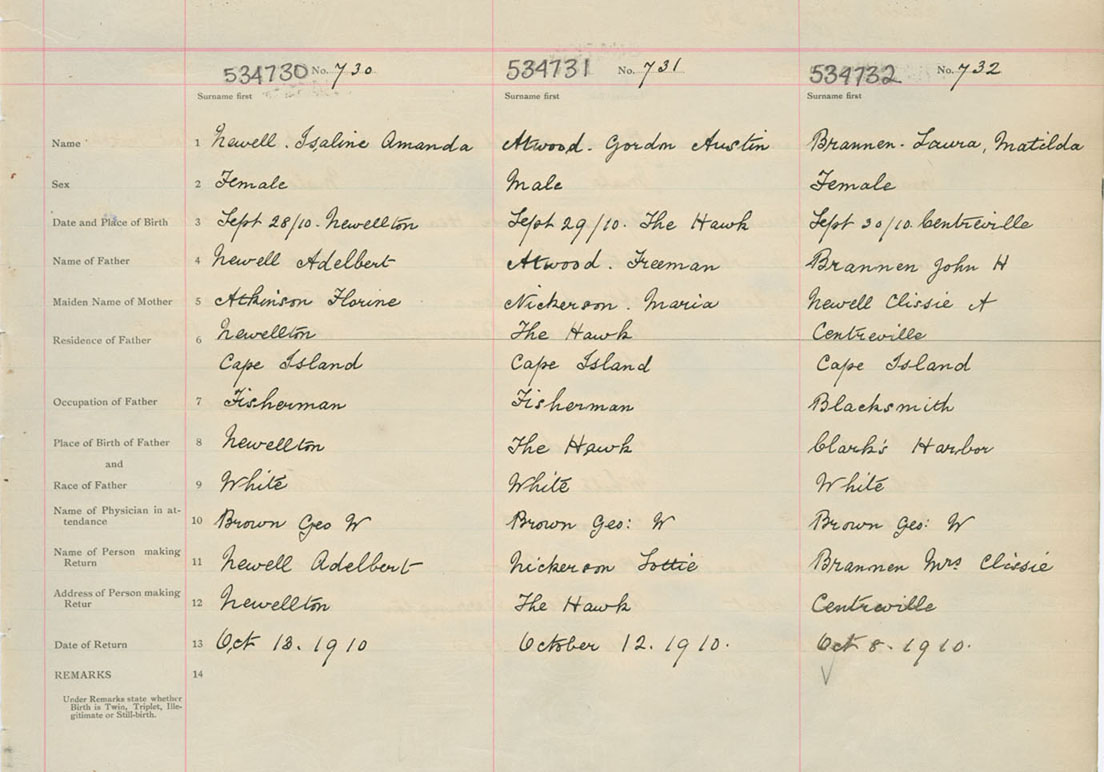 534730 No. 730 534731 No. 731 534732 No. 732
Surname first Surname first Surname first
Name 1 Newell . Isaline Amanda Atwood . Gordon Austin Brannen . Laura, Matilda
Sex 2 Female Male Female
Date and Place of Birth 3 Sept 28/10 . Newellton Sept 29/10 . The Hawk Sept 30/10 . Centreville
Name of Father 4 Newell Adelbert Atwood . Freeman Brannen John H
Maiden Name of Mother 5 Atkinson Florine Nickerson . Maria Newell Clissie A
Residence of Father 6 Newellton The Hawk Centreville
Cape Island Cape Island Cape Island
Occupation of Father 7 Fisherman Fisherman Blacksmith
Place of Birth of Father 8 Newellton The Hawk Clark's Harbor
and
Race of Father 9 White White White
Name of Physician in at-
tendance 10 Brown Geo W Brown Geo: W Brown Geo: W
Name of Person making
Return 11 Newell Adelbert Nickerson Lottie Brannen Mrs Clissie
Address of Person making
Retur 12 Newellton The Hawk Centreville
Date of Return 13 Oct 13 . 1910 October 12 . 1910 . Oct 8 . 1910 .
REMARKS 14
Under Remarks state whether
Birth is Twin, Triplet, Ille-
gitimate or Still-birth.